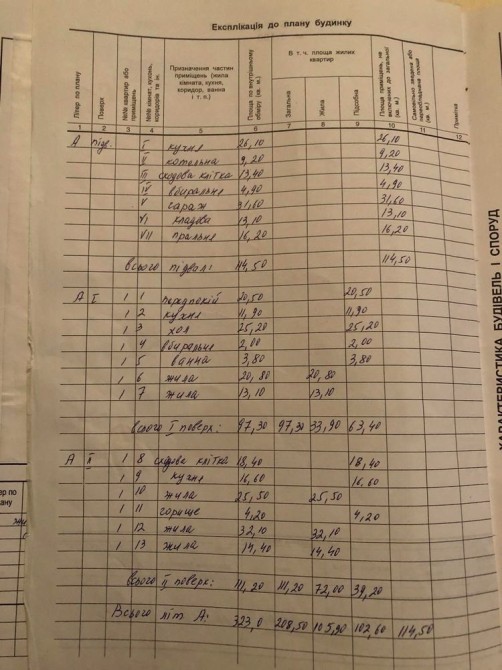 Експлікація до плану будинку
Літер по плану
Поверх
№№ квартир або приміщень
№№ кімнат, кухонь, коридорів та ін.
Призначення частин приміщень (жила кімната, кухня, коридор, ванна і т. п.)
Площа по внутрішньому обміру (кв. м.)
В т. ч. площа жилих квартир
Загальна
Жила
Підсобна
Площа приміщень, не включених до загальної (кв. м.)
Самовільно зведена або переобладнана площа (кв. м.)
Примітка
1 2 3 4 5 6 7 8 9 10 11 12
А підв. I кухня 26,10 26,10
II котельна 9,20 9,20
III сходова клітка 13,40 13,40
IV вбиральня 4,90 4,90
V гараж 31,60 31,60
VI кладова 13,10 13,10
VII пральня 16,20 16,20
всього підвал: 114,50 114,50
А I 1 1 передпокій 20,50 20,50
1 2 кухня 11,90 11,90
1 3 хол 25,20 25,20
1 4 вбиральня 2,00 2,00
1 5 ванна 3,80 3,80
1 6 жила 20,80 20,80
1 7 жила 13,10 13,10
всього I поверх: 97,30 97,30 33,90 63,40
А II 1 8 сходова клітка 18,40 18,40
1 9 кухня 16,60 16,60
1 10 жила 25,50 25,50
1 11 горище 4,20 4,20
1 12 жила 32,10 32,10
1 13 жила 14,40 14,40
всього II поверх: 111,20 111,20 72,00 39,20
Всього літ А: 323,0 208,50 105,90 102,60 114,50
ХАРАКТЕРИСТИКА БУДІВЕЛЬ І СПОРУД